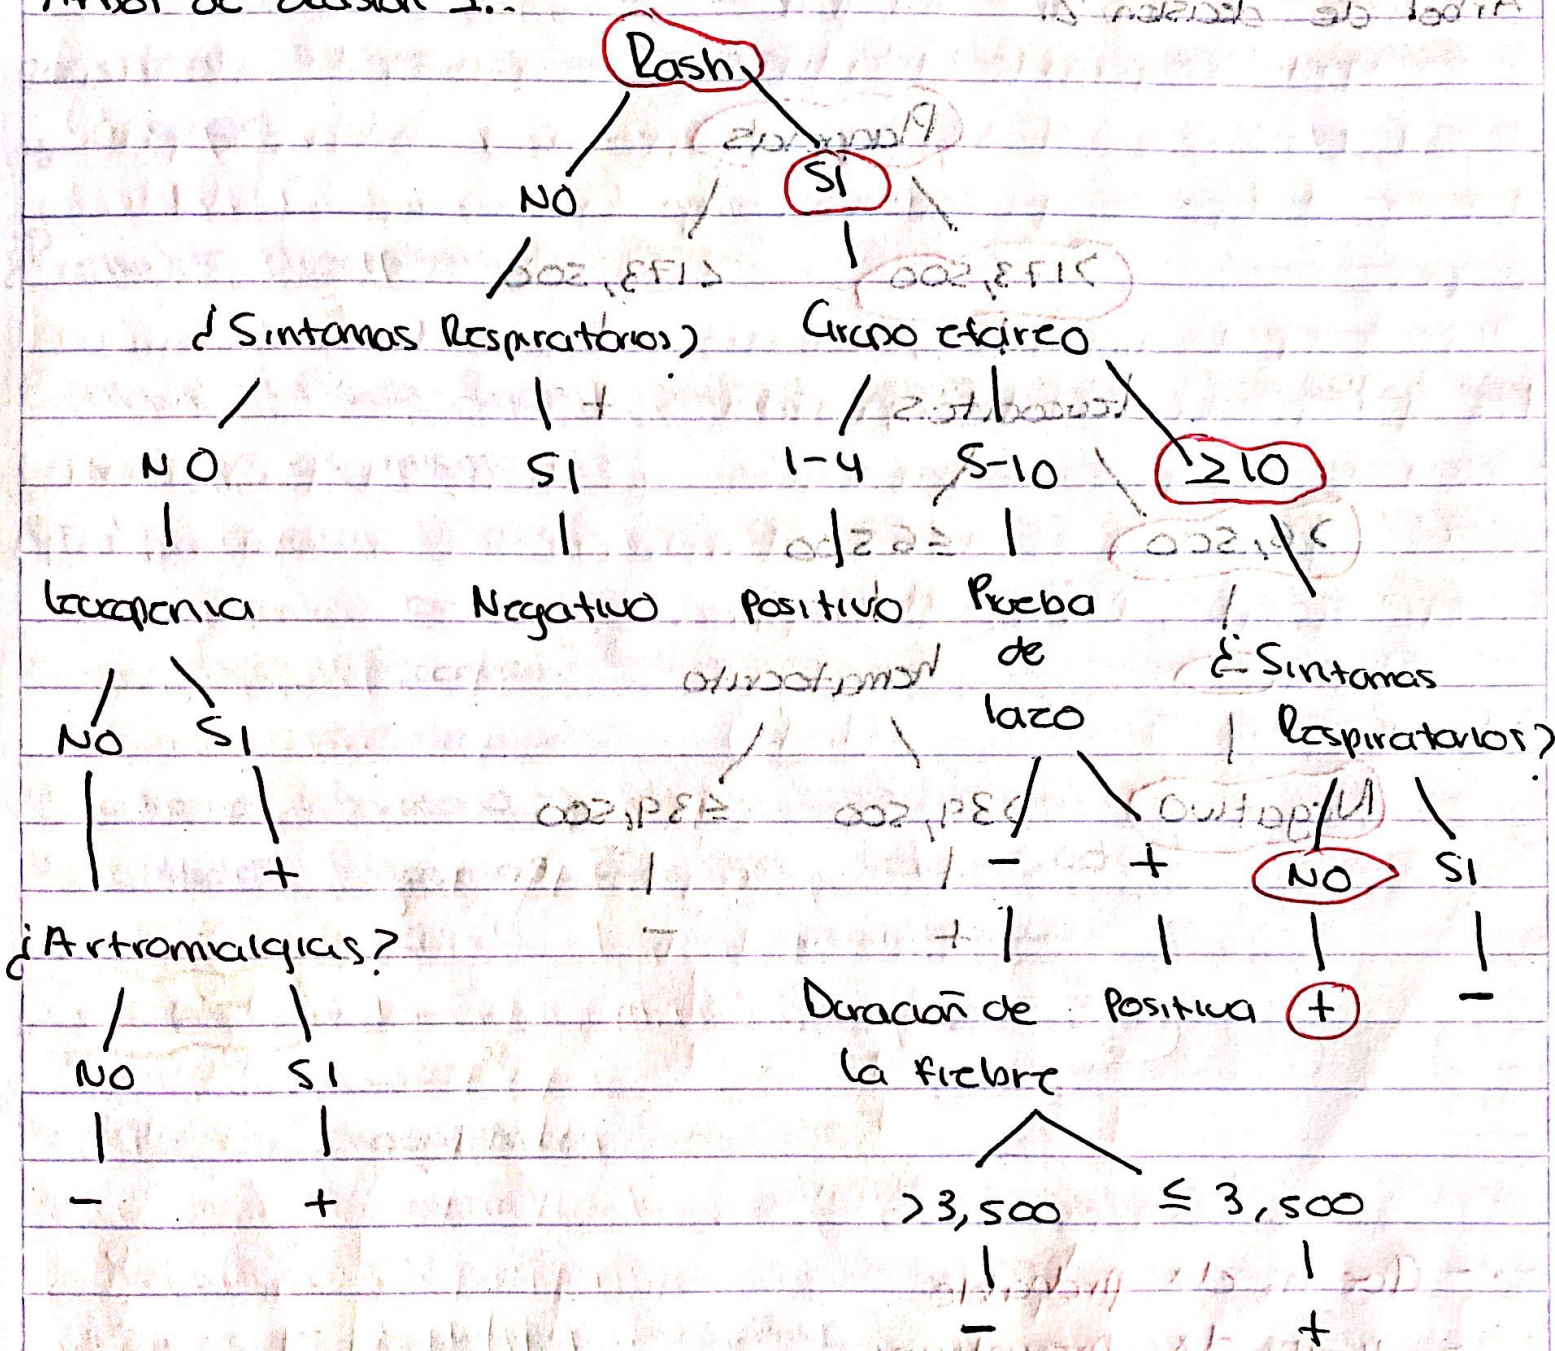 Arbol de decisión 1..
Rash
NO
SI
¿Sintomas Respiratorios?
Grupo etáreo
NO
SI
1-4
5-10
≥10
leucopenia
Negativo
Positivo
Prueba
de
lazo
¿Sintomas
Respiratorios?
NO
SI
+
-
+
NO
SI
¿Artromialgias?
Duración de
la fiebre
Positiva
+
-
NO
SI
-
+
>3,500
≤ 3,500
-
+